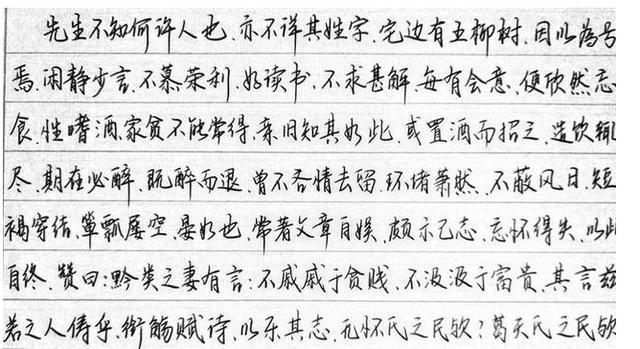 先生不知何许人也,亦不详其姓字,宅边有五柳树,因以为号
焉.闲静少言,不慕荣利.好读书,不求甚解,每有会意,便欣然忘
食.性嗜酒,家贫不能常得.亲旧知其好此,或置酒而招之,造饮辄
尽.期在必醉,既醉而退,曾不吝情去留.环堵萧然,不蔽风日.短
褐穿结,箪瓢屡空,晏如也,常著文章自娱,颇示己志,忘怀得失,以此
自终.赞曰:黔娄之妻有言:不戚戚于贫贱,不汲汲于富贵,其言兹
若之人俦乎.衔觞赋诗,以乐其志,无怀氏之民欤?葛天氏之民欤